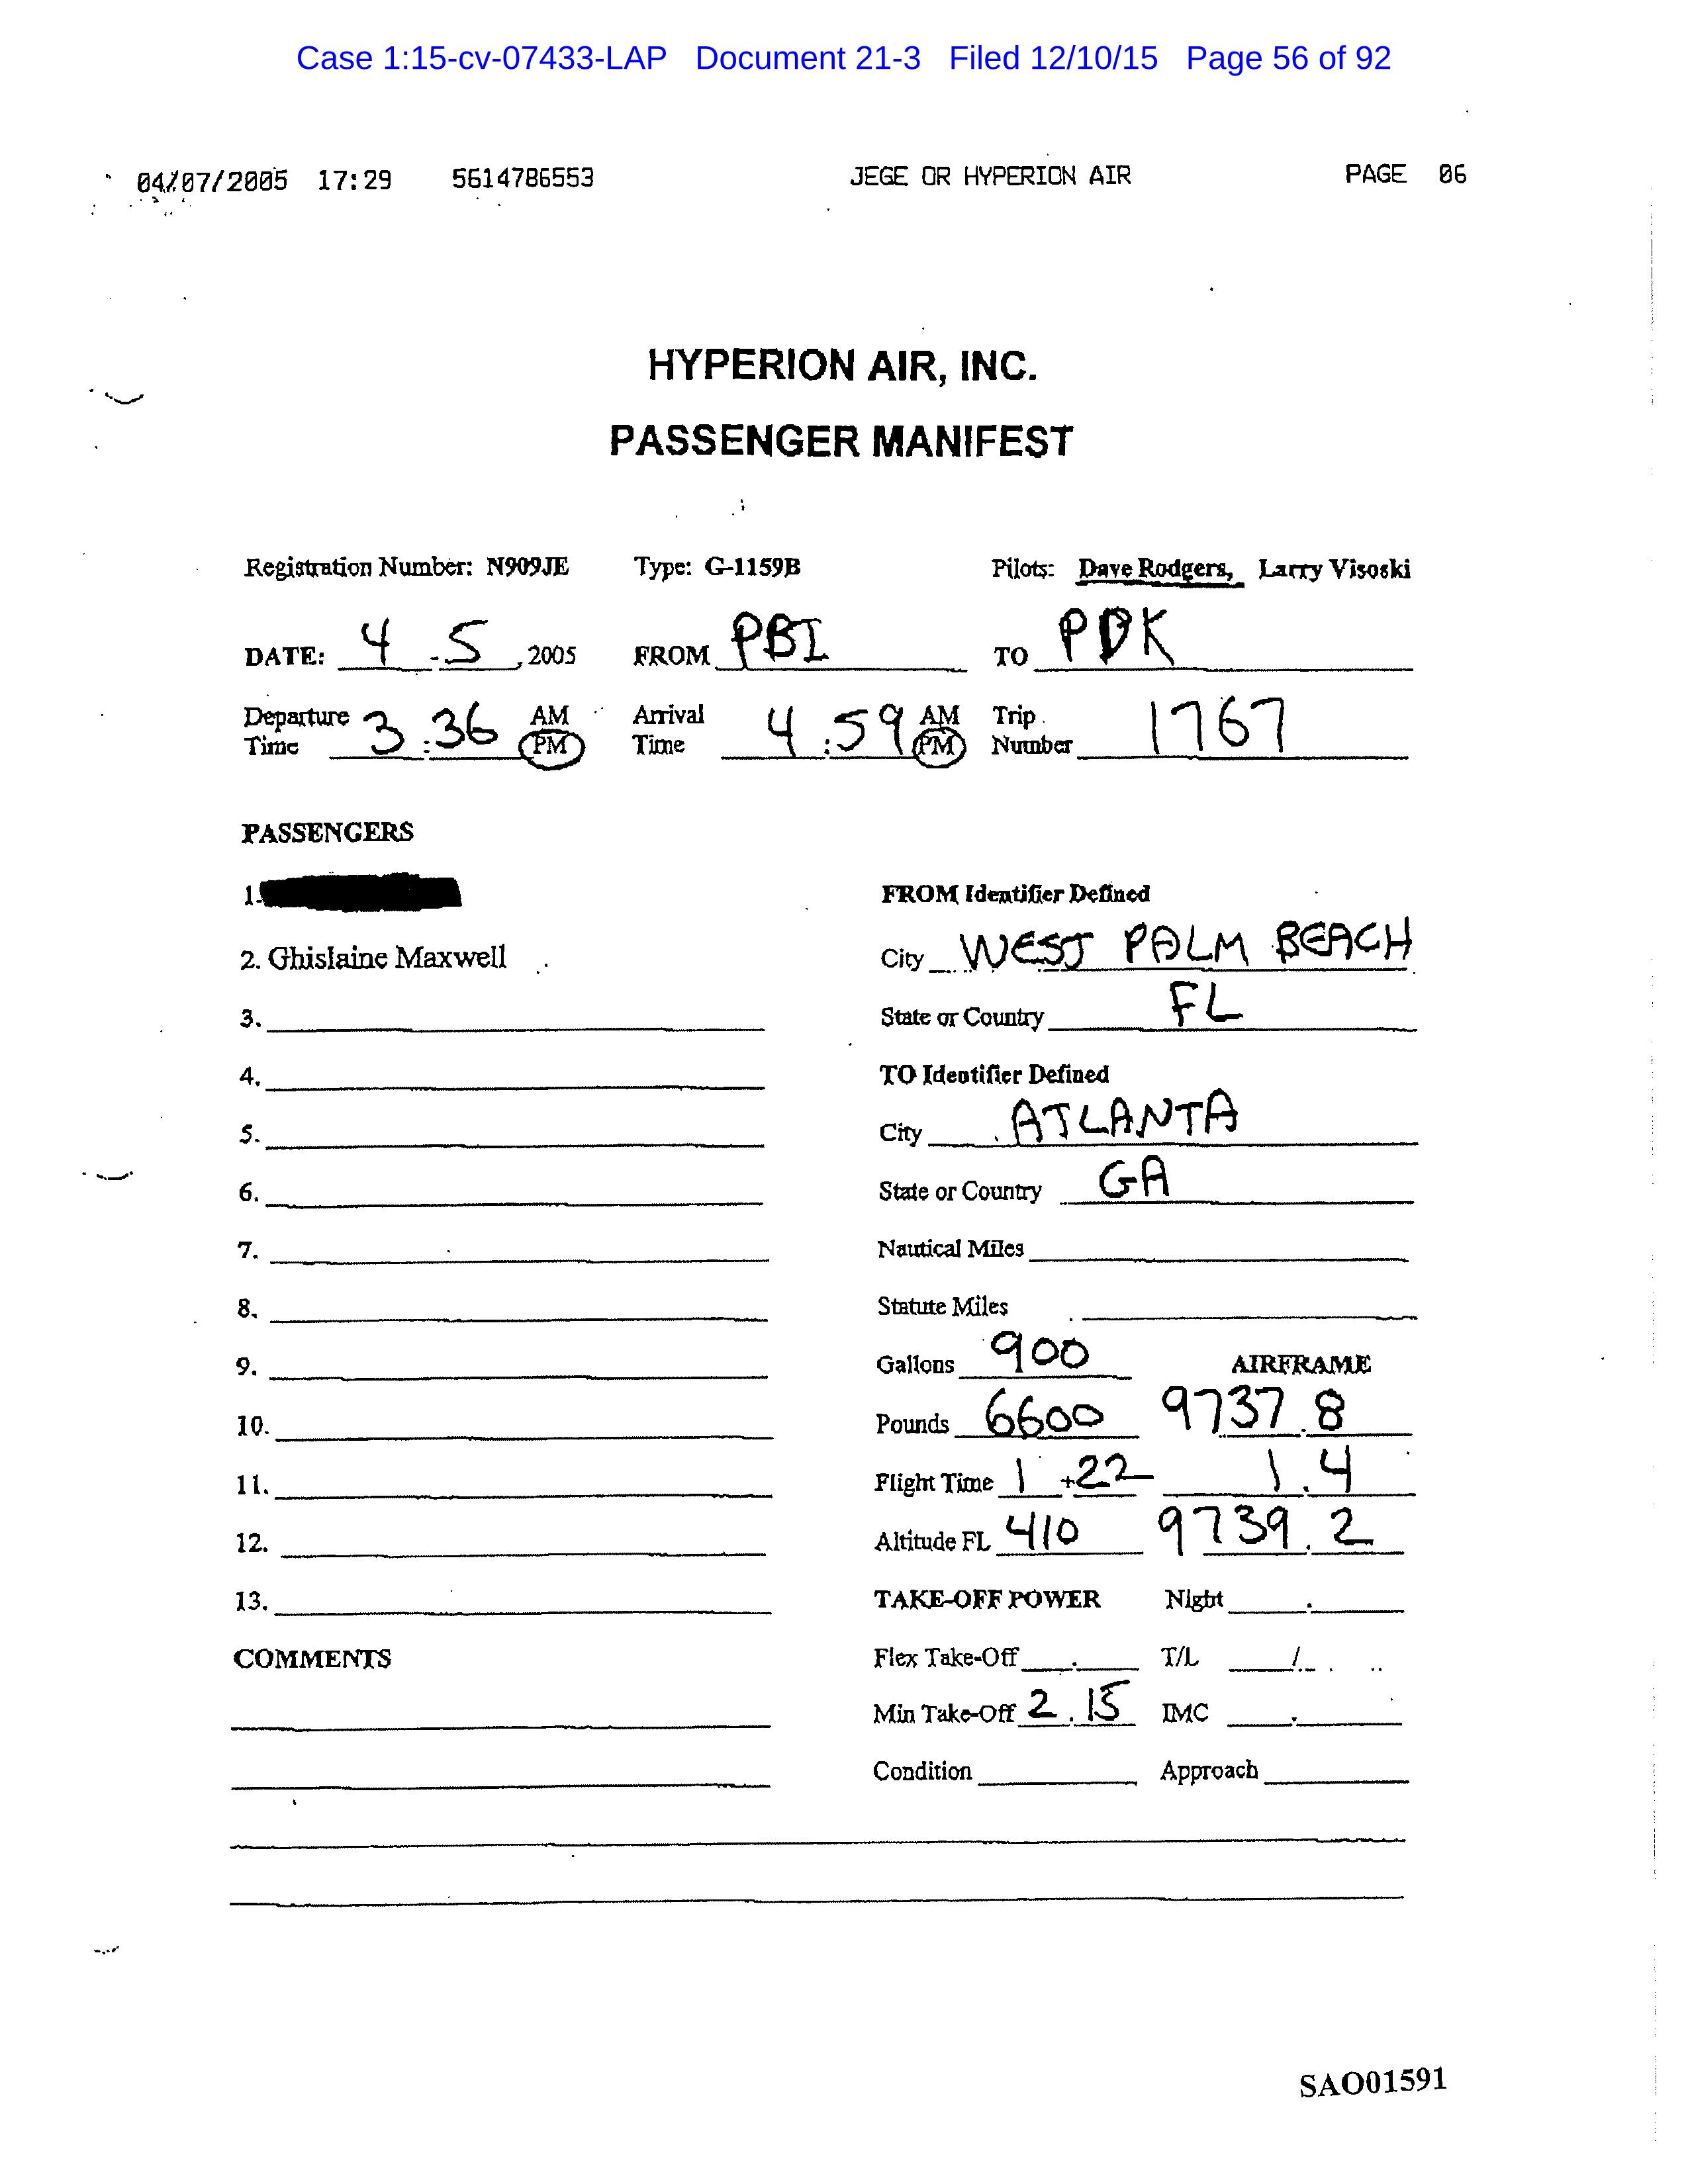 Case 1:15-cv-07433-LAP Document 21-3 Filed 12/10/15 Page 56 of 92
04/07/2005 17:29 5614786553 JEGE OR HYPERION AIR PAGE 06
HYPERION AIR, INC.
PASSENGER MANIFEST
Registration Number: N909JE Type: G-1159B Pilots: Dave Rodgers, Larry Visoski
DATE: 4 - 5 , 2005 FROM PBI TO PDK
Departure Time 3 : 36 AM PM Arrival Time 4 : 59 AM PM Trip Number 1767
PASSENGERS
1. FROM Identifier Defined
2. Ghislaine Maxwell City WEST PALM BEACH
3. State or Country FL
4. TO Identifier Defined
5. City ATLANTA
6. State or Country GA
7. Nautical Miles
8. Statute Miles
9. Gallons 900 AIRFRAME
10. Pounds 6600 9737.8
11. Flight Time 1 +22 1.4
12. Altitude FL 410 9739.2
13. TAKE-OFF POWER Night .
COMMENTS Flex Take-Off . T/L /
Min Take-Off 2.15 IMC .
Condition Approach
SAO01591